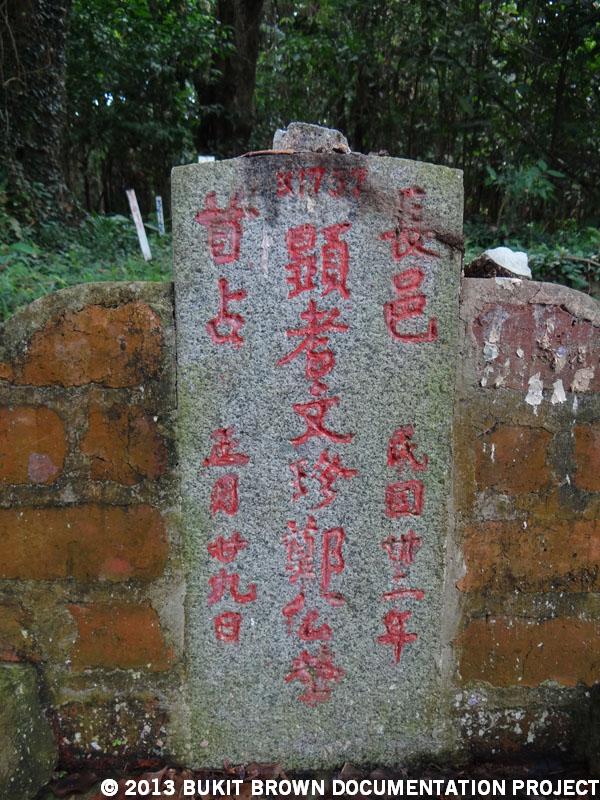 長邑
民国卅二年
顯考文珍鄭公塋
首占
正月廿九日
© 2013 BUKIT BROWN DOCUMENTATION PROJECT